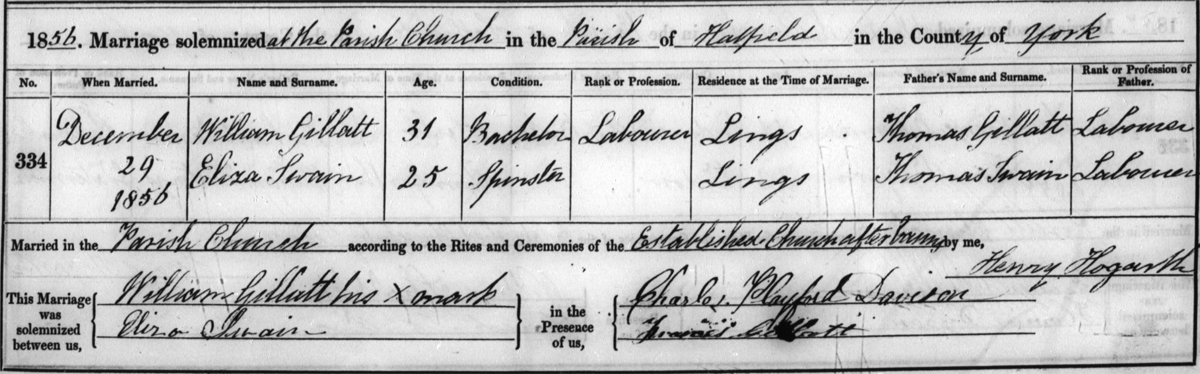 1856. Marriage solemnized at the Parish Church in the Parish of Hatfield in the County of York
No. When Married. Name and Surname. Age. Condition. Rank or Profession. Residence at the Time of Marriage. Father's Name and Surname. Rank or Profession of Father.
334 December 29 1856 William Gillatt 31 Bachelor Labourer Lings Thomas Gillatt Labourer
Eliza Swain 25 Spinster Lings Thomas Swain Labourer
Married in the Parish Church according to the Rites and Ceremonies of the Established Church after banns by me,
Henry Hogarth
This Marriage was solemnized between us, William Gillatt his X mark
Eliza Swain
in the Presence of us, Charles Playford Davison
Gillatt